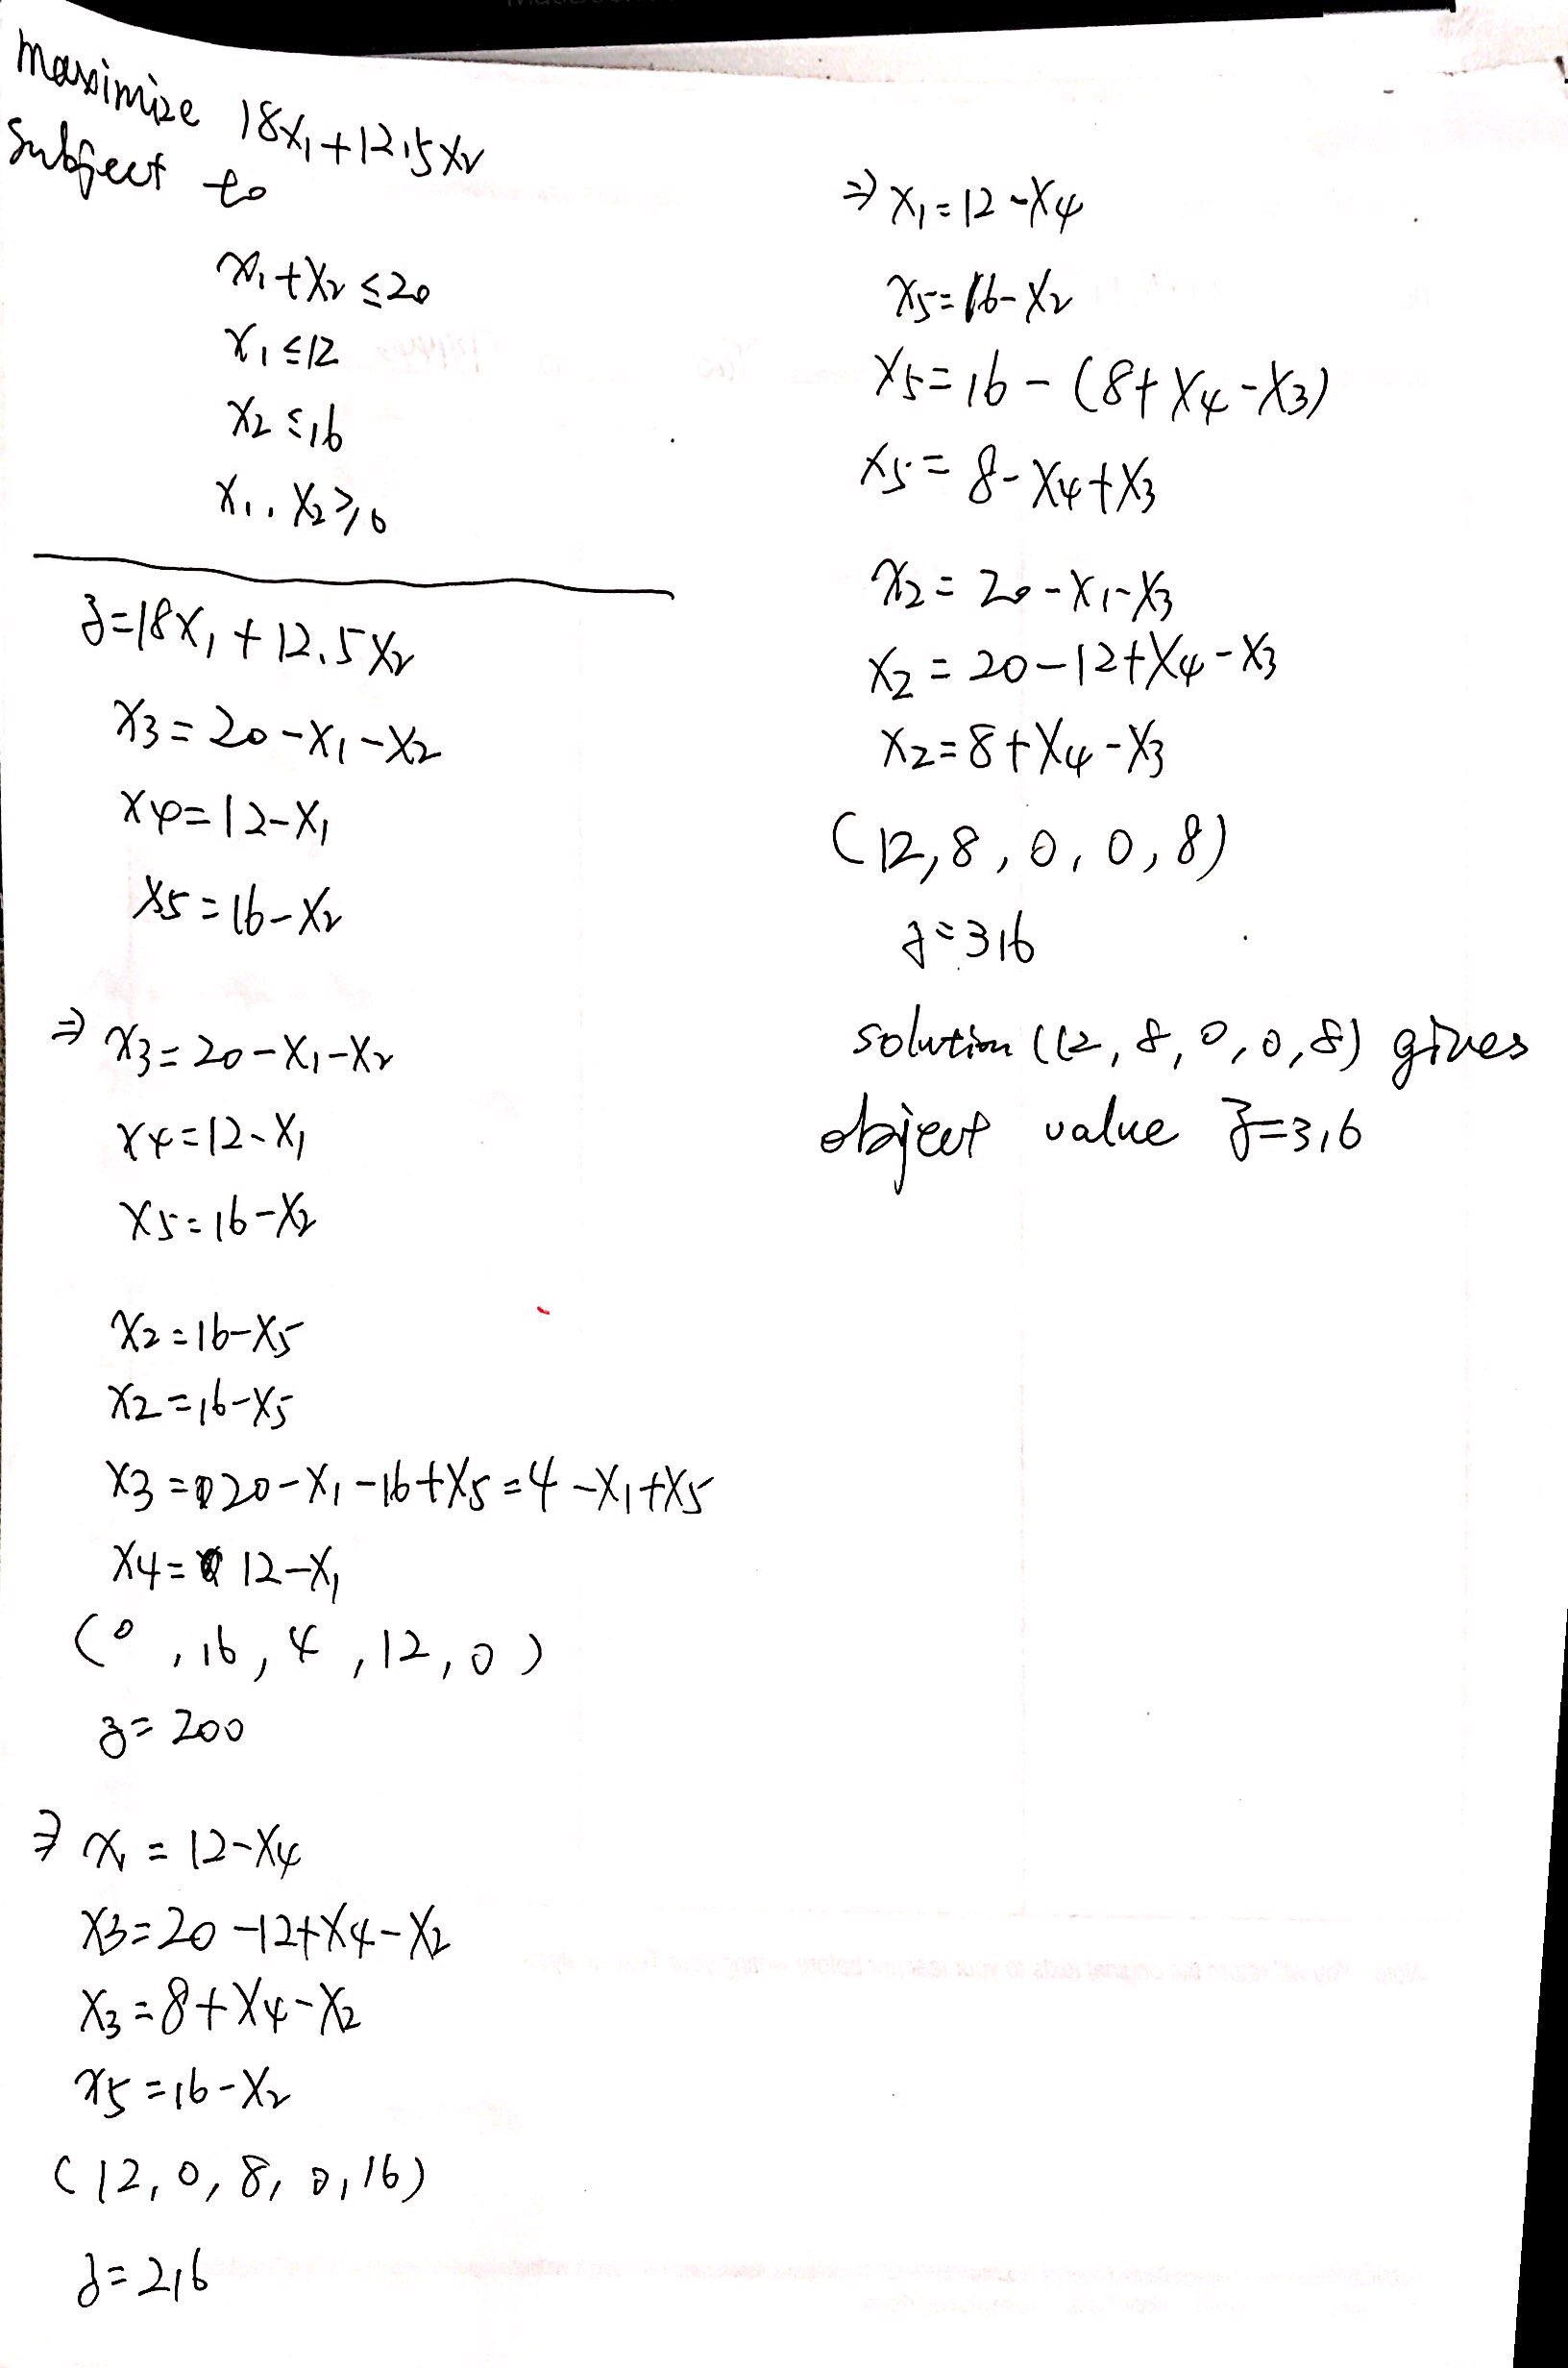 Maximize 18x₁+12.5x₂
Subject to
x₁+x₂≤20
x₁≤12
x₂≤16
x₁, x₂≥0
z=18x₁+12.5x₂
x₃=20-x₁-x₂
x₄=12-x₁
x₅=16-x₂
⇒ x₃=20-x₁-x₂
x₄=12-x₁
x₅=16-x₂
x₂=16-x₅
x₂=16-x₅
x₃=20-x₁-16+x₅=4-x₁+x₅
x₄=12-x₁
(0,16,4,12,0)
z=200
⇒ x₁=12-x₄
x₃=20-12+x₄-x₂
x₃=8+x₄-x₂
x₅=16-x₂
(12,0,8,0,16)
z=216
⇒ x₁=12-x₄
x₅=16-x₂
x₅=16-(8+x₄-x₃)
x₅=8-x₄+x₃
x₂=20-x₁-x₃
x₂=20-12+x₄-x₃
x₂=8+x₄-x₃
(12,8,0,0,8)
z=316
solution (12,8,0,0,8) gives
object value z=316